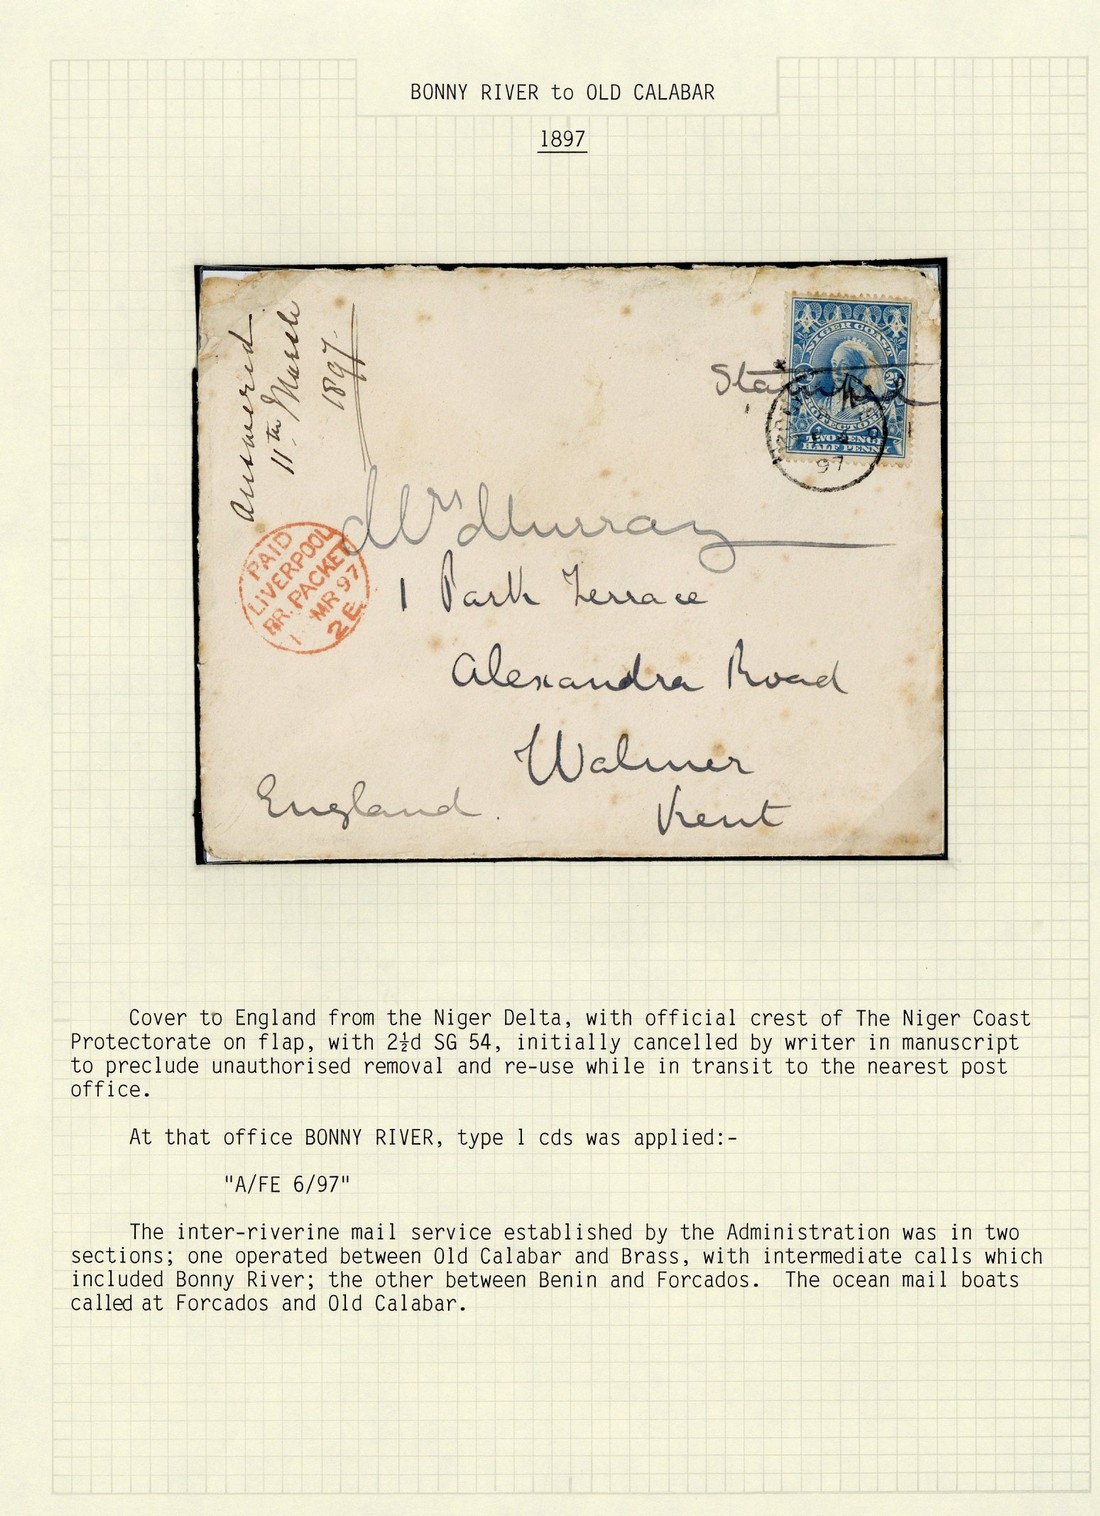 BONNY RIVER to OLD CALABAR
1897
Answered
11th March
1897
NIGER COAST
PROTECTORATE
TWO PENCE
HALF PENNY
Stamped
97
Mrs Murray
1 Park Terrace
Alexandra Road
Walmer
Kent
England.
PAID
LIVERPOOL
BR. PACKET
1 MR 97
2E
Cover to England from the Niger Delta, with official crest of The Niger Coast
Protectorate on flap, with 2½d SG 54, initially cancelled by writer in manuscript
to preclude unauthorised removal and re-use while in transit to the nearest post
office.
At that office BONNY RIVER, type 1 cds was applied:-
"A/FE 6/97"
The inter-riverine mail service established by the Administration was in two
sections; one operated between Old Calabar and Brass, with intermediate calls which
included Bonny River; the other between Benin and Forcados. The ocean mail boats
called at Forcados and Old Calabar.